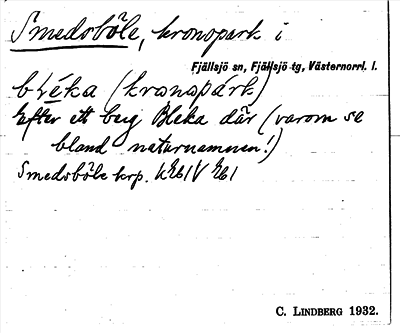 Smedsböle, kronopark i
Fjällsjö sn, Fjällsjö tg, Västernorrl. l.
bléka (kronopárk)
Efter ett berg Bleka där (varom se
bland naturnamnen!)
Smedsböle krp.
C. LINDBERG 1932.